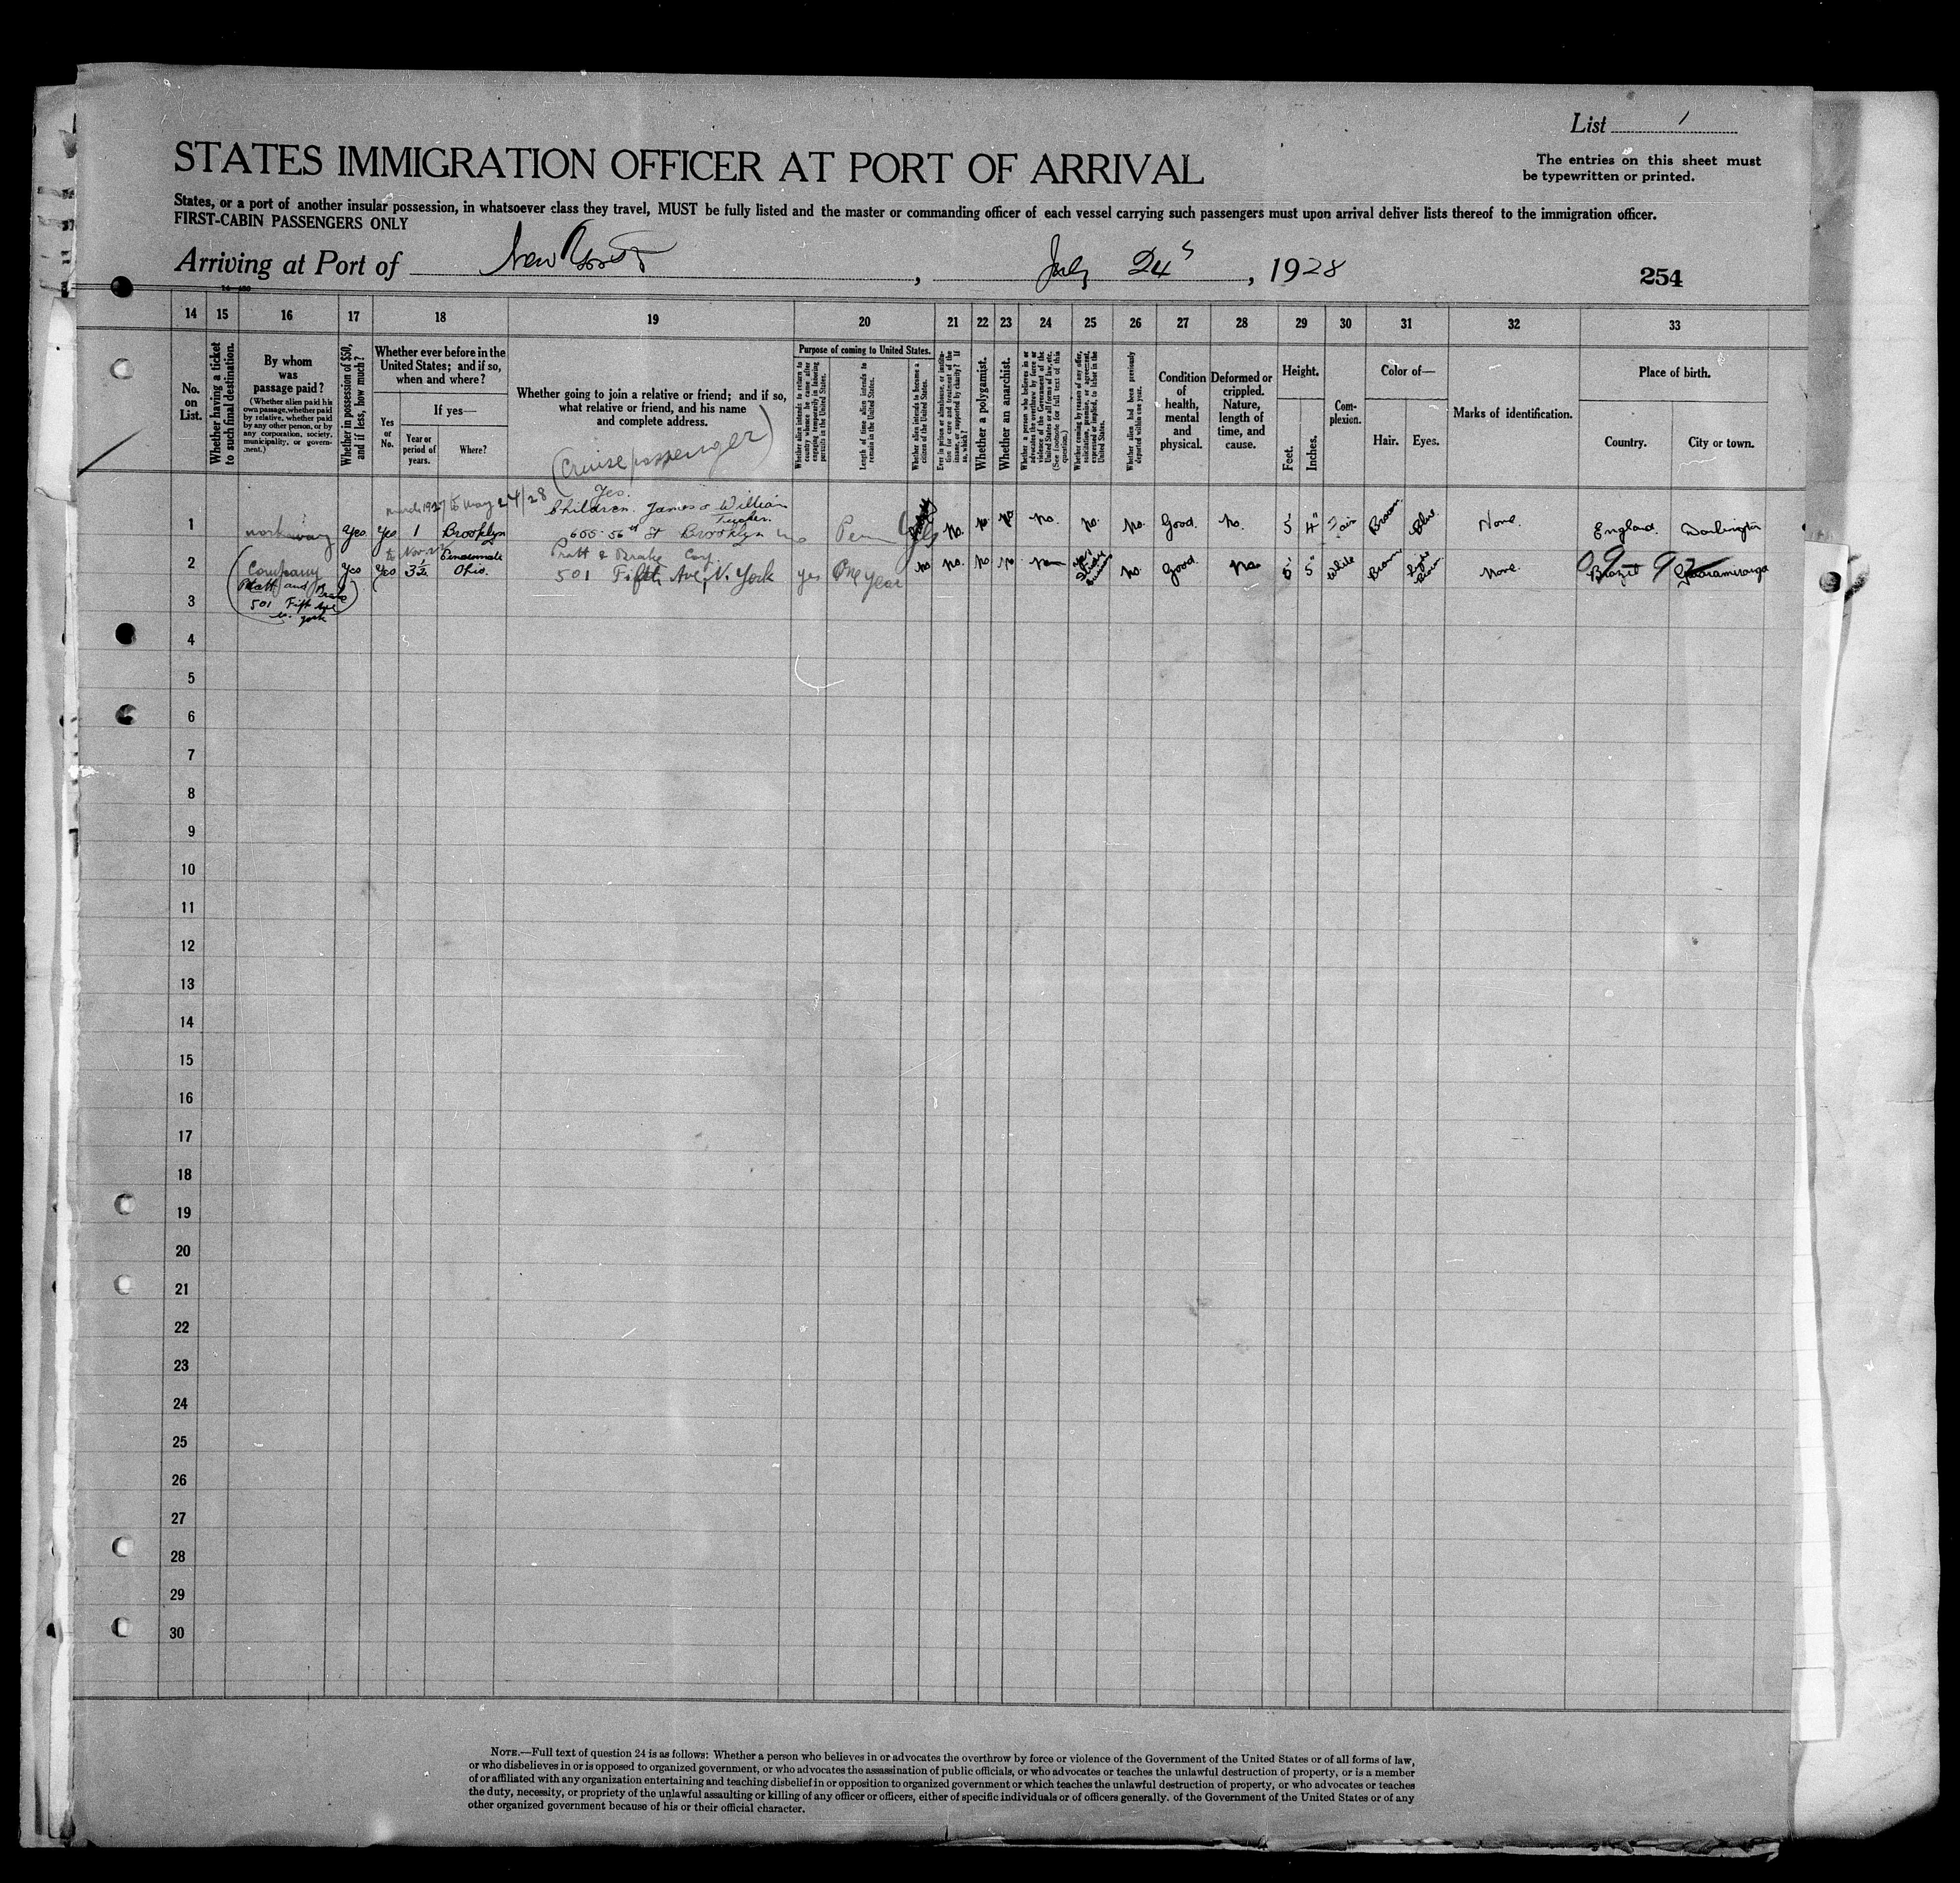 List 1
The entries on this sheet must
be typewritten or printed.
STATES IMMIGRATION OFFICER AT PORT OF ARRIVAL
States, or a port of another insular possession, in whatsoever class they travel, MUST be fully listed and the master or commanding officer of each vessel carrying such passengers must upon arrival deliver lists thereof to the immigration officer.
FIRST-CABIN PASSENGERS ONLY
Arriving at Port of New York, July 24, 1928
254
14 15 16 17 18 19 20 21 22 23 24 25 26 27 28 29 30 31 32 33
No. on List.
Whether having a ticket to such final destination.
By whom was passage paid?
(Whether alien paid his own passage, whether paid by relative, whether paid by any other person, or by any corporation, society, municipality, or government.)
Whether in possession of $50, and if less, how much?
Whether ever before in the United States; and if so, when and where?
Yes or No.
If yes—
Year or period of years.
Where?
Whether going to join a relative or friend; and if so, what relative or friend, and his name and complete address.
(Cruise passenger)
Purpose of coming to United States.
Whether alien intends to return to country whence he came after engaging temporarily in laboring pursuits in the United States.
Length of time alien intends to remain in the United States.
Whether alien intends to become a citizen of the United States.
Ever in prison or almshouse, or institution for care and treatment of the insane, or supported by charity? If so, which?
Whether a polygamist.
Whether an anarchist.
Whether a person who believes in or advocates the overthrow by force or violence of the Government of the United States or all forms of law, etc. (See footnote for full text of this question.)
Whether coming by reason of any offer, solicitation, promise, or agreement, expressed or implied, to labor in the United States.
Whether alien had been previously deported within one year.
Condition of health, mental and physical.
Deformed or crippled. Nature, length of time, and cause.
Height.
Feet.
Inches.
Complexion.
Color of—
Hair.
Eyes.
Marks of identification.
Place of birth.
Country.
City or town.
March 1927 to May 24/28
Yes.
Children. James & William
Tucker.
1 Yes Yes 1 Brooklyn 655-56th St Brooklyn no Yes No. No No No. No. No. Good. No. 5 4" Fair Brown Blue None. England. Darlington
Nov. Pratt & Brake Corp
2 Company Yes Yes 3½ Ohio. 501 Fifth Ave, N. York yes One Year No No. No No No. Good. No 5 5" White Brown None. Brazil
09-92
3 Pratt and Brake
501 Fifth Ave
N. York
4
5
6
7
8
9
10
11
12
13
14
15
16
17
18
19
20
21
22
23
24
25
26
27
28
29
30
NOTE.—Full text of question 24 is as follows: Whether a person who believes in or advocates the overthrow by force or violence of the Government of the United States or of all forms of law,
or who disbelieves in or is opposed to organized government, or who advocates the assassination of public officials, or who advocates or teaches the unlawful destruction of property, or is a member
of or affiliated with any organization entertaining and teaching disbelief in or opposition to organized government or which teaches the unlawful destruction of property, or who advocates or teaches
the duty, necessity, or propriety of the unlawful assaulting or killing of any officer or officers, either of specific individuals or of officers generally. of the Government of the United States or of any
other organized government because of his or their official character.